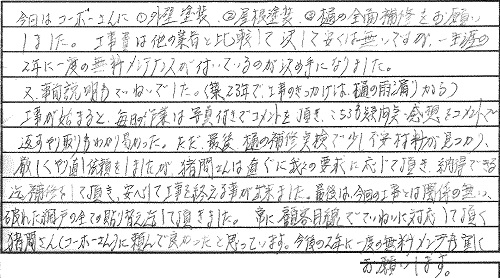 今回はコーボーさんに ①外壁塗装、②屋根塗装、③樋の全面補修をお願い
しました。工事費は他の業者と比較して決して安くは無いですが、一生涯の
2年に一度の無料メンテナンスが付いているのが決め手になりました。
又、事前説明もていねいでした。(築23年で、工事のきっかけは、樋の雨漏り
工事が始まると、毎日の作業は写真付きでコメントを頂き、こちらも疑問点・感想をコメントで
返すやり取りもわかり易かった。ただ、最後、樋の補修点検で少し不安材料が見つかり、
厳しくやり直し依頼をしましたが、猪間さんは直ぐに我々の要求に応じて頂き、納得できる
迄補修をして頂き、安心して工事を終える事が出来ました。最後は、今回の工事とは関係の無い、
破れた網戸の全ての貼り替えをして頂きました。常に顧客目線でていねいに対応して頂く
猪間さん(コーボーさん)に頼んで良かったと思っています。今後の2年に一度の無料メンテも宜しく
お願いします。